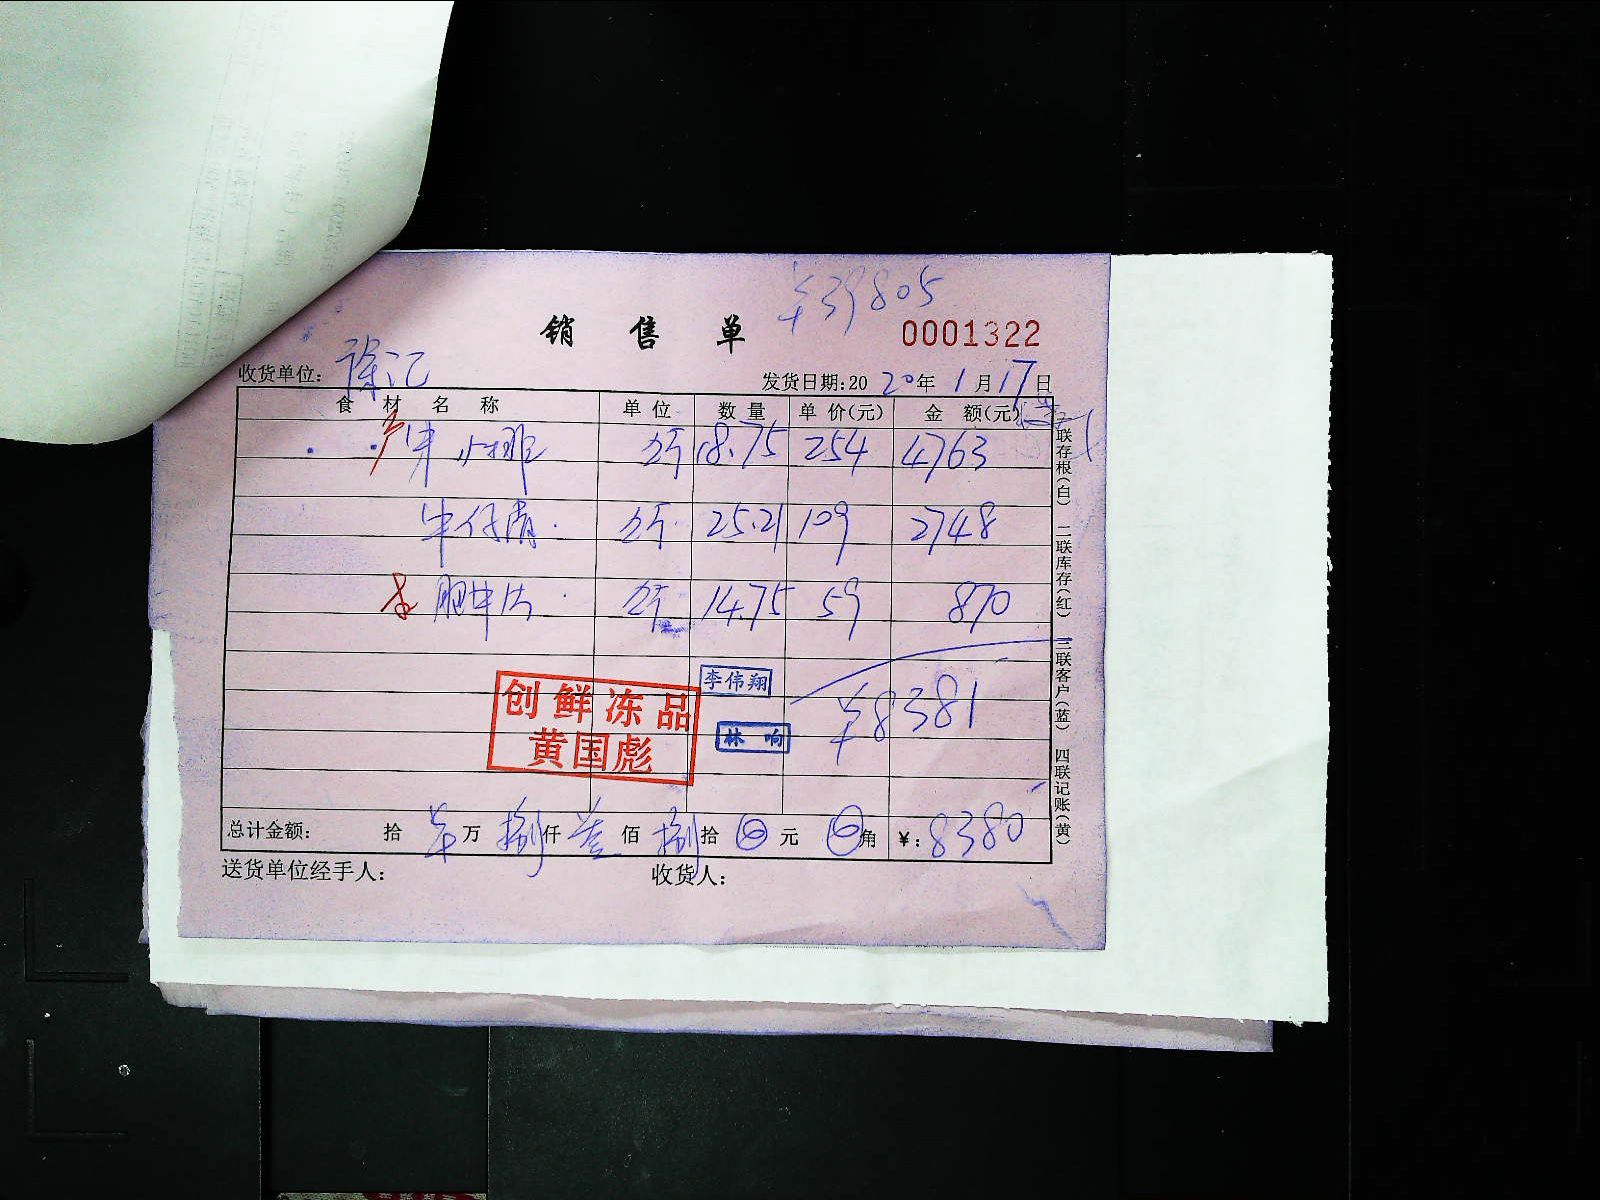 ¥39805
销售单 0001322
收货单位: 徐记 发货日期:2020年1月17日
食材名称 单位 数量 单价(元) 金额(元)
牛小排 斤 18.75 254 4763
牛仔骨 斤 25.21 109 2748
肥牛片 斤 14.75 59 870
¥8381
李伟翔
林响
创鲜冻品
黄国彪
总计金额: 拾 万 捌仟叁佰捌拾 元 角 ¥: 8380
送货单位经手人: 收货人:
联存根(白) 二联库存(红) 三联客户(蓝) 四联记账(黄)